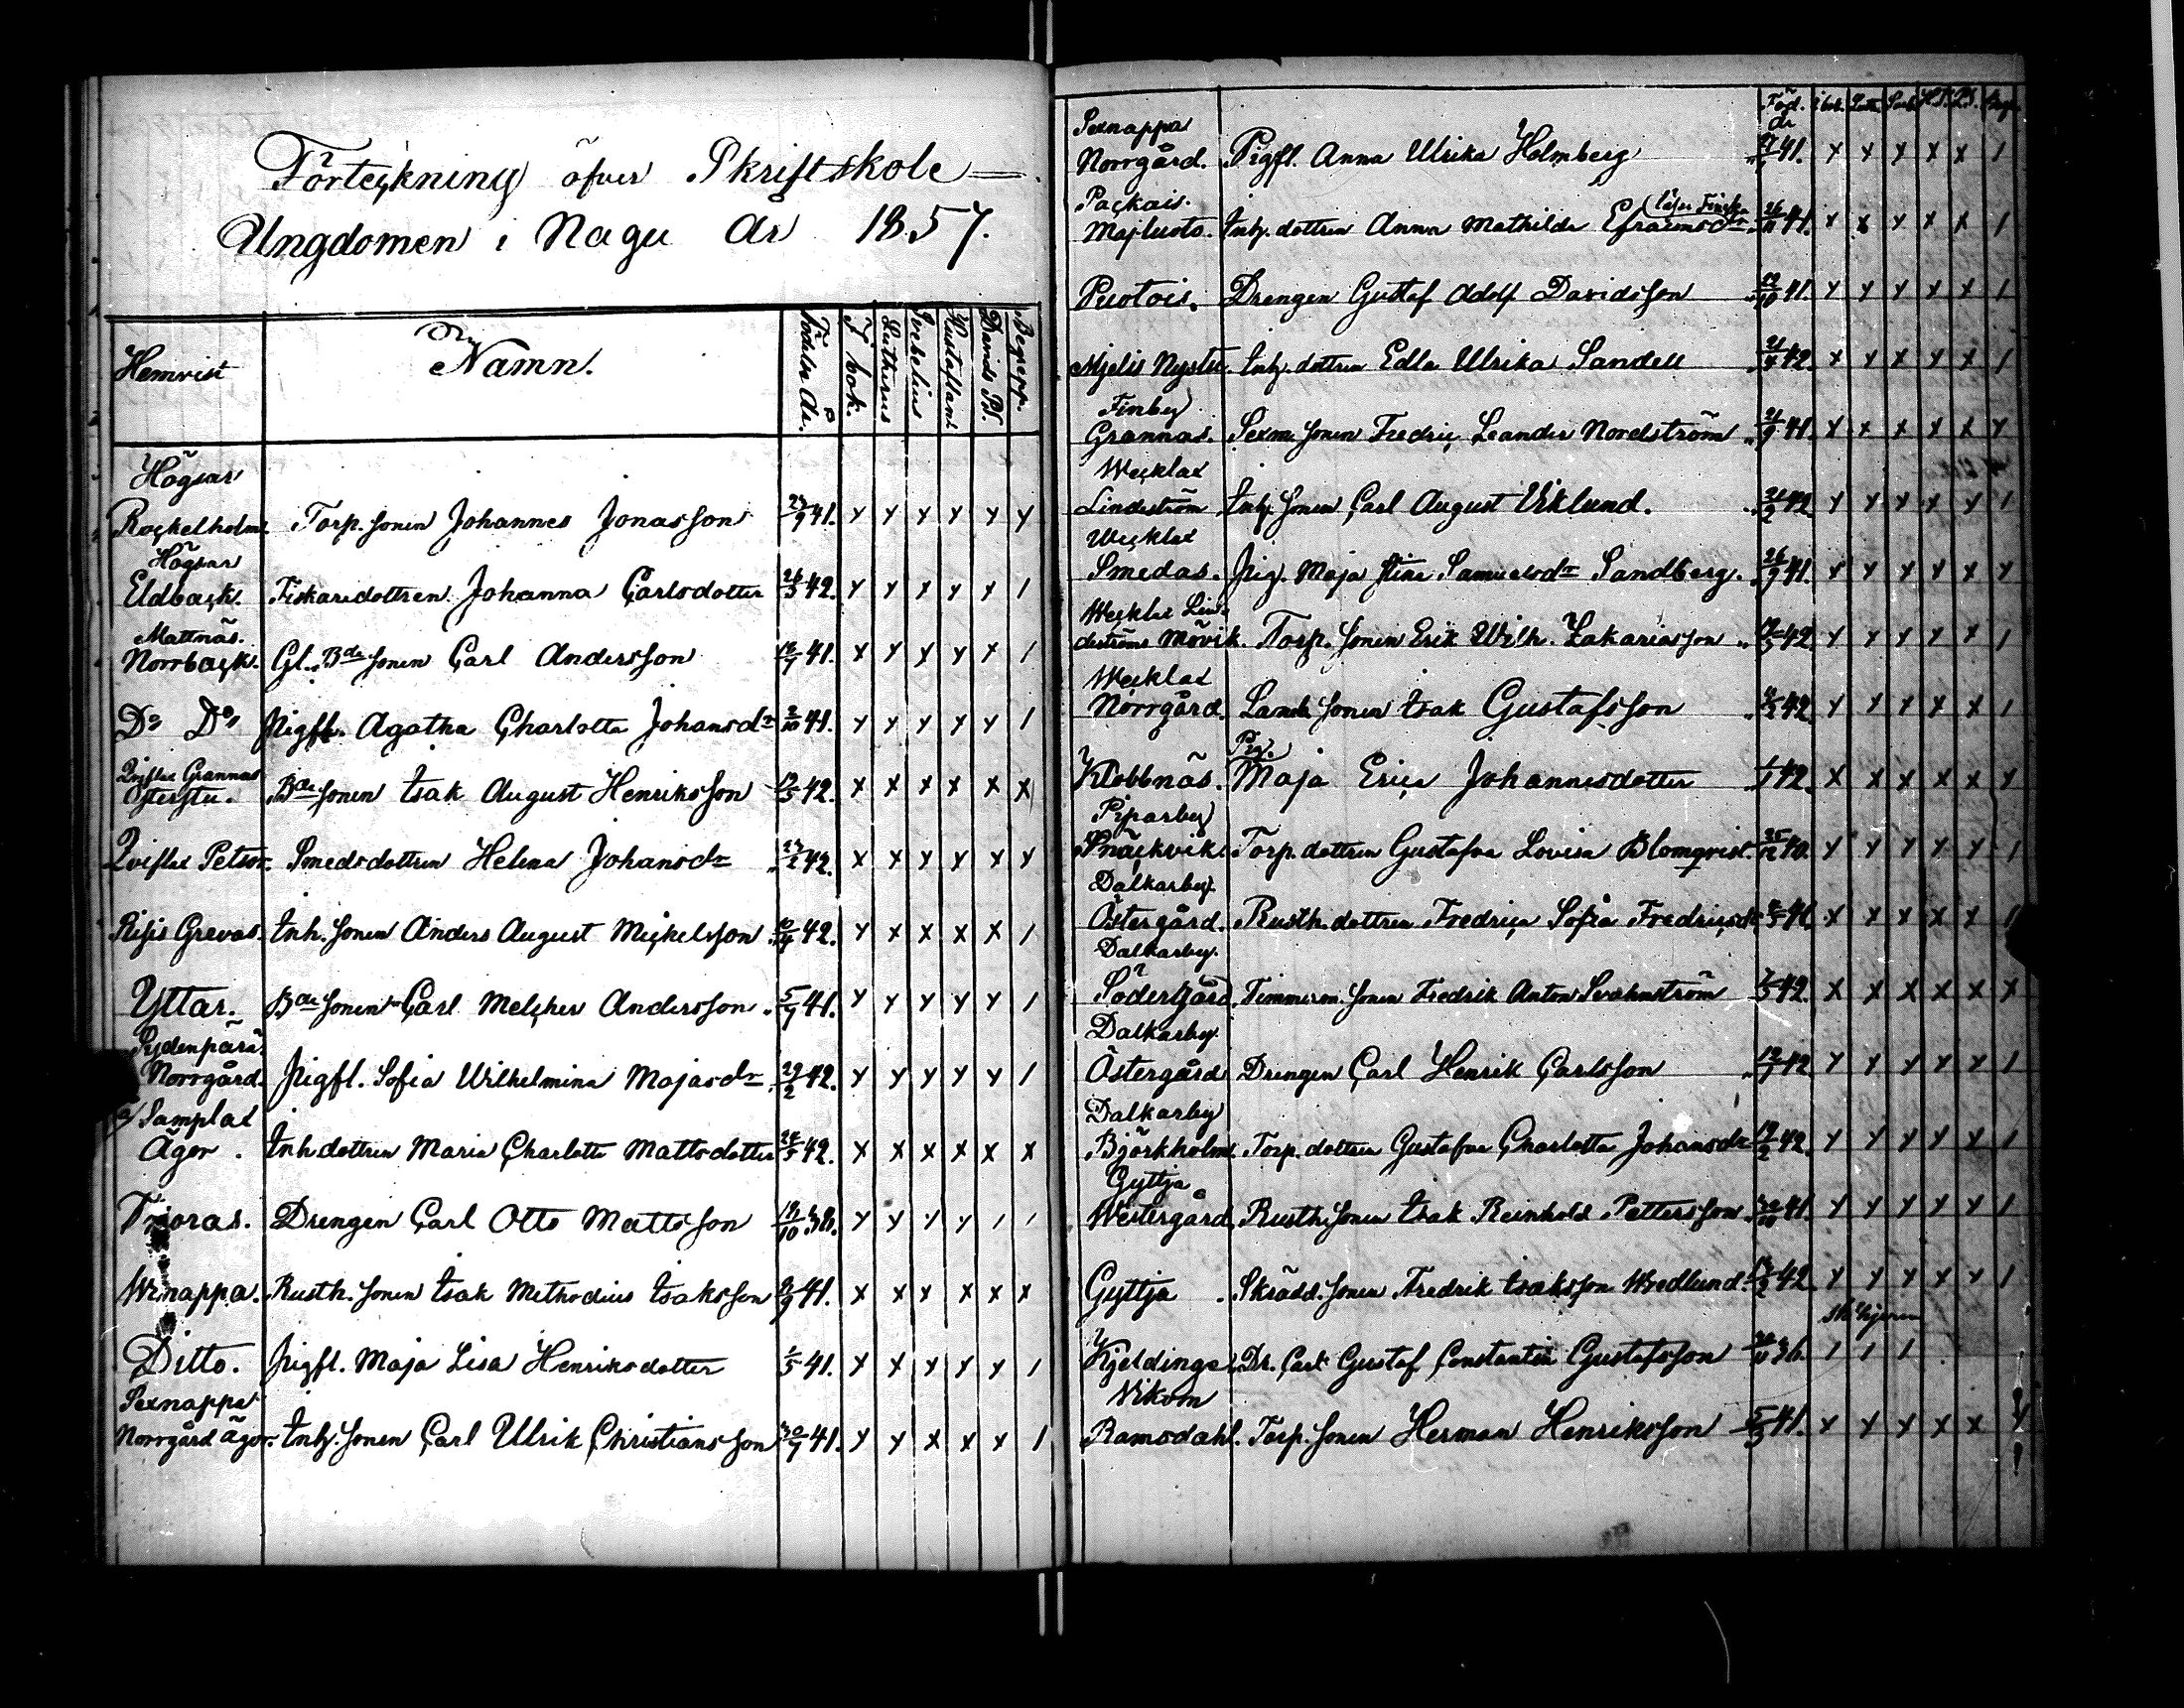 Förteckning öfver Skriftskole-
Ungdomen i Nagu År 1857.
Hemvist Namn. Födelse År. I bok. Lutherus Svebelius Hustaflan Davids Ps. Begrepp.
Högsar
Rockelholm. Torp. sonen Johannes Jonasson 23/9 41. x x x x x x
Högsar
Eldback. Fiskaredottren Johanna Carlsdotter 26/3 42. x x x x x /
Mattnäs.
Norrback. Gl. Bde sonen Carl Andersson 41. x x x x x /
Do Do Pigfl. Agatha Charlotta Johansdr 2/10 41. x x x x x /
Qviflax Grannas
Österstu. Bde sonen Isak August Henriksson 42. x x x x x x
Qviflax Petsor. Smedsdottren Helena Johansdr 42. x x x x x x
Risis Grevas. Inh. sonen Anders August Mickelsson 42. x x x x x /
Yttar. Bde sonen Carl Melcher Andersson 41. x x x x x /
Sydenpärä
Norrgård. Pigfl. Sofia Wilhelmina Majasdr 29/2 42. x x x x x /
Samplax
Ägor. Inh dottren Maria Charlotta Mattsdotter 42. x x x x x x
Drengen Carl Otto Mattsson 18/10 38. x x x x / /
Rusth. sonen Isak Methodius Isaksson 41. x x x x x x
Ditto. Pigfl. Maja Lisa Henriksdotter 1/5 41. x x x x x /
Sexnappa
Norrgård Ägor. Inh. sonen Carl Ulrik Christiansson 30/7 41. x x x x x /
Föd. år i bok. Luth. Sveb. H.T. D.Ps. Begr.
Sexnappa
Norrgård. Pigfl. Anna Ulrika Holmberg 41. x x x x x /
Packais. läser Finska
Majluoto. Inh. dottren Anna Mathilda Efraimsdr 41. x x x x x /
Puotois. Drengen Gustaf Adolf Davidsson 41. x x x x x /
Mjelis Nystu. Inh. dottren Edla Ulrika Sandell 42. x x x x x /
Finby
Grannas. Sexm. sonen Fredric Leander Nordström 21/9 41. x x x x x x
Wecklax
Lindström Inh. sonen Carl August Viklund. 42 x x x x x /
Wecklax
Smedas. Pig. Maja Stina Samuelsdr Sandberg. 26/9 41. x x x x x x
Wecklax Lin-
deströms Mövik. Torp. sonen Erik Wilh. Zakariasson 42. x x x x x /
Wecklax
Norrgård. Landb sonen Isak Gustafsson 42. x x x x x /
Klobbnäs. Pig. Maja Erica Johannesdotter 1/1 42. x x x x x x
Piparby
Snäckvik. Torp. dottren Gustafva Lovisa Blomqvist. 25/12 40. x x x x x /
Dalkarby.
Östergård. Rusth. dottren Fredrica Sofia Fredricsdr 41. x x x x x /
Dalkarby.
Södergård. Timmerm. sonen Fredrik Anton Svahnström 42. x x x x x x
Dalkarby.
Östergård Drengen Carl Henrik Carlsson 42 x x x x x /
Dalkarby
Björkholm. Torp. dottren Gustafva Charlotta Johansdr 19/2 42. x x x x x /
Gyttja
Westergård Rusth. sonen Isak Reinhold Pettersson 41. x x x x x /
Gyttja. Skrädd. sonen Fredrik Isaksson Wredlund. 42. x x x x x /
Kjeldinge. Dr. Carl Gustaf Constantin Gustafsson 36. / / /
Vikom
Ramsdahl. Torp. sonen Herman Henriksson 5/3 41. x x x x x x